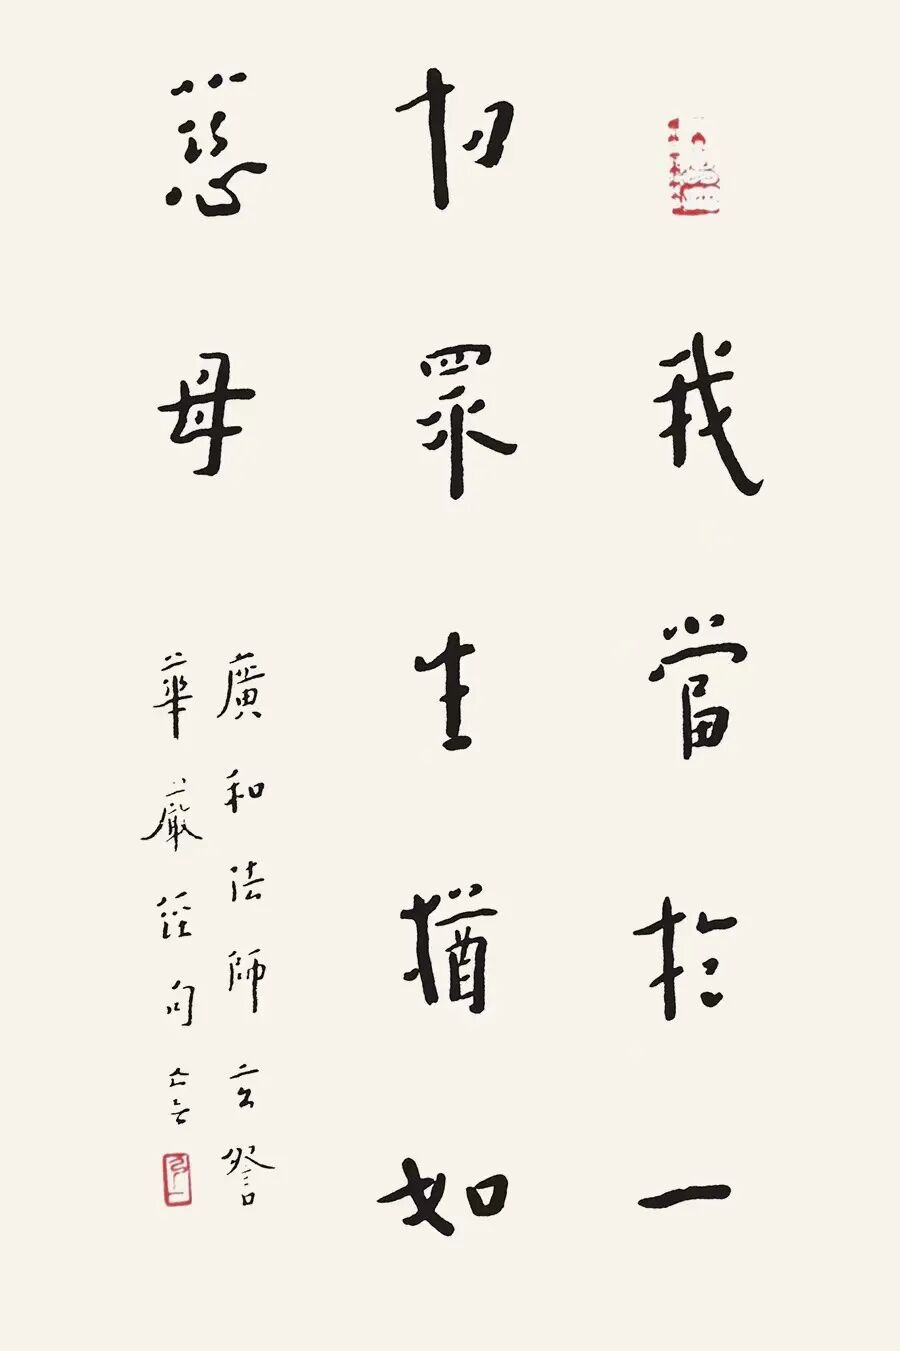 我當於一
切眾生猶如
慈母
廣和法師玄督
華嚴經句